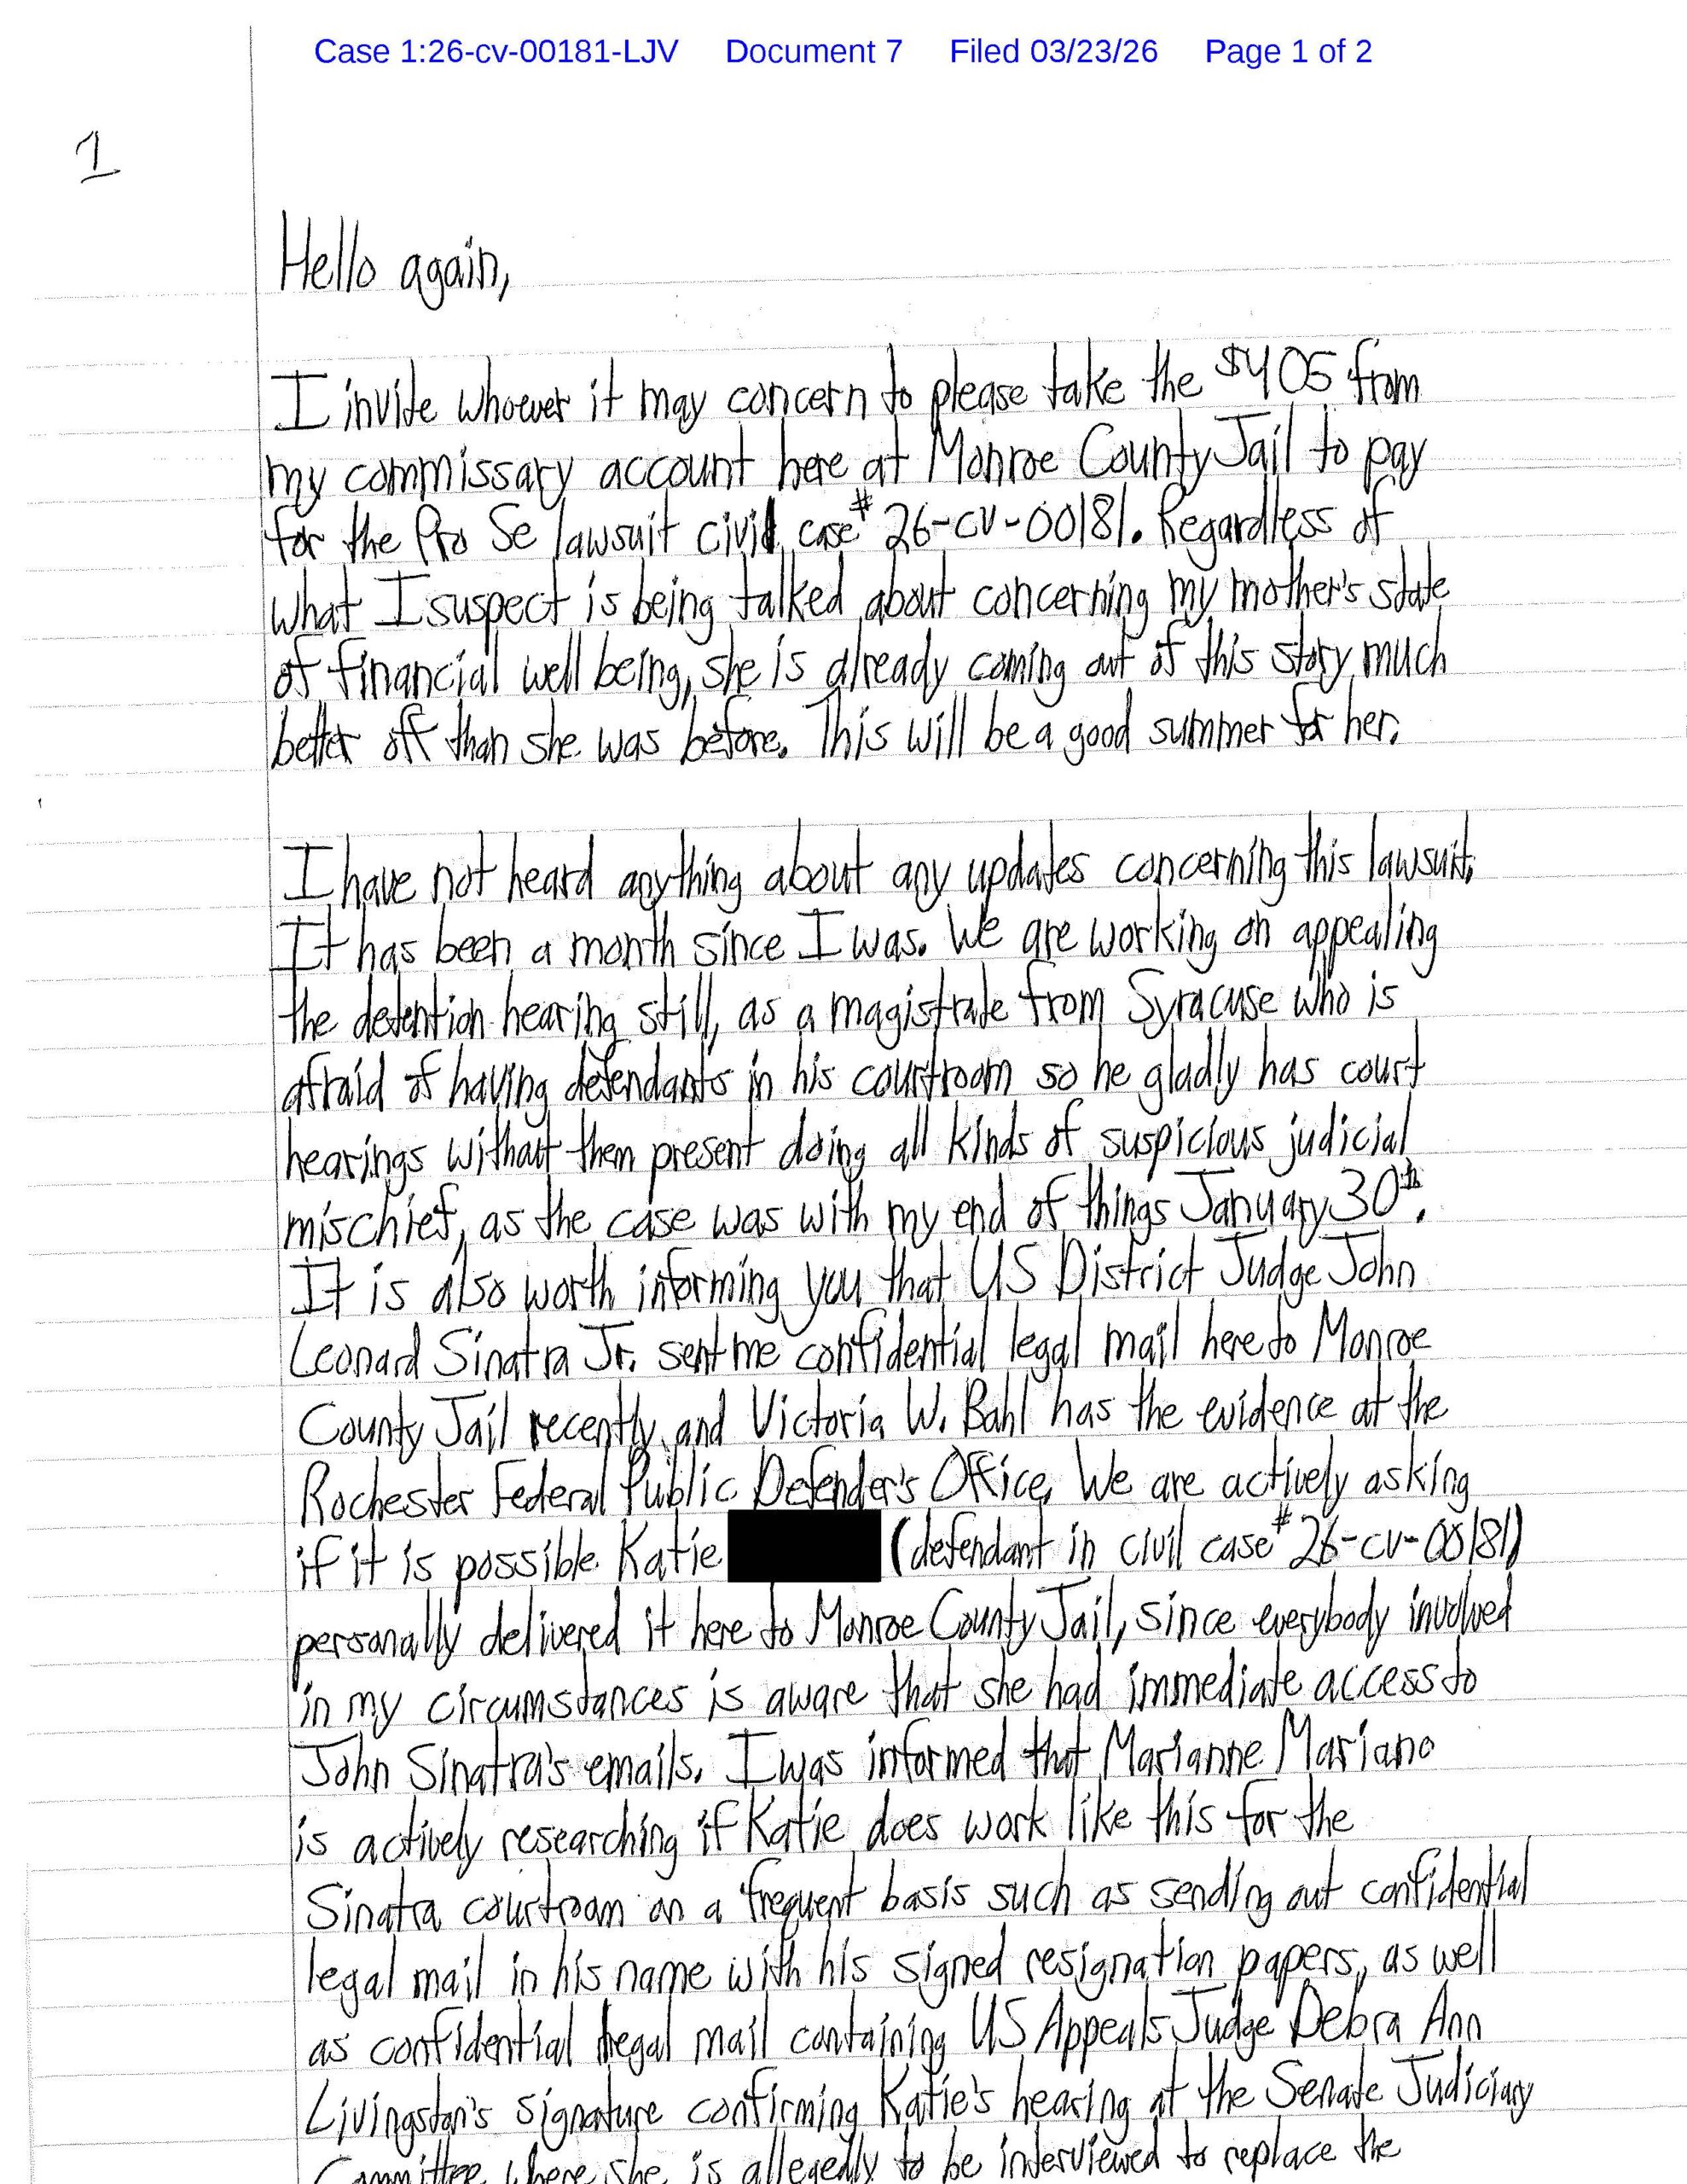 Case 1:26-cv-00181-LJV Document 7 Filed 03/23/26 Page 1 of 2
1
Hello again,
I invite whoever it may concern to please take the $405 from
my commissary account here at Monroe County Jail to pay
for the Pro Se lawsuit civil case # 26-cv-00181. Regardless of
what I suspect is being talked about concerning my mother's state
of financial well being, she is already coming out of this story much
better off than she was before. This will be a good summer for her.
I have not heard anything about any updates concerning this lawsuit.
It has been a month since I was. We are working on appealing
the detention hearing still, as a magistrate from Syracuse who is
afraid of having defendants in his courtroom so he gladly has court
hearings without them present doing all kinds of suspicious judicial
mischief, as the case was with my end of things January 30th.
It is also worth informing you that US District Judge John
Leonard Sinatra Jr. sent me confidential legal mail here to Monroe
County Jail recently and Victoria W. Bahl has the evidence at the
Rochester Federal Public Defender's Office. We are actively asking
if it is possible Katie (defendant in civil case # 26-cv-00181)
personally delivered it here to Monroe County Jail, since everybody involved
in my circumstances is aware that she had immediate access to
John Sinatra's emails. I was informed that Marianne Mariano
is actively researching if Katie does work like this for the
Sinatra courtroom on a frequent basis such as sending out confidential
legal mail in his name with his signed resignation papers, as well
as confidential legal mail containing US Appeals Judge Debra Ann
Livingston's signature confirming Katie's hearing at the Senate Judiciary
Committee where she is allegedly to be interviewed to replace the